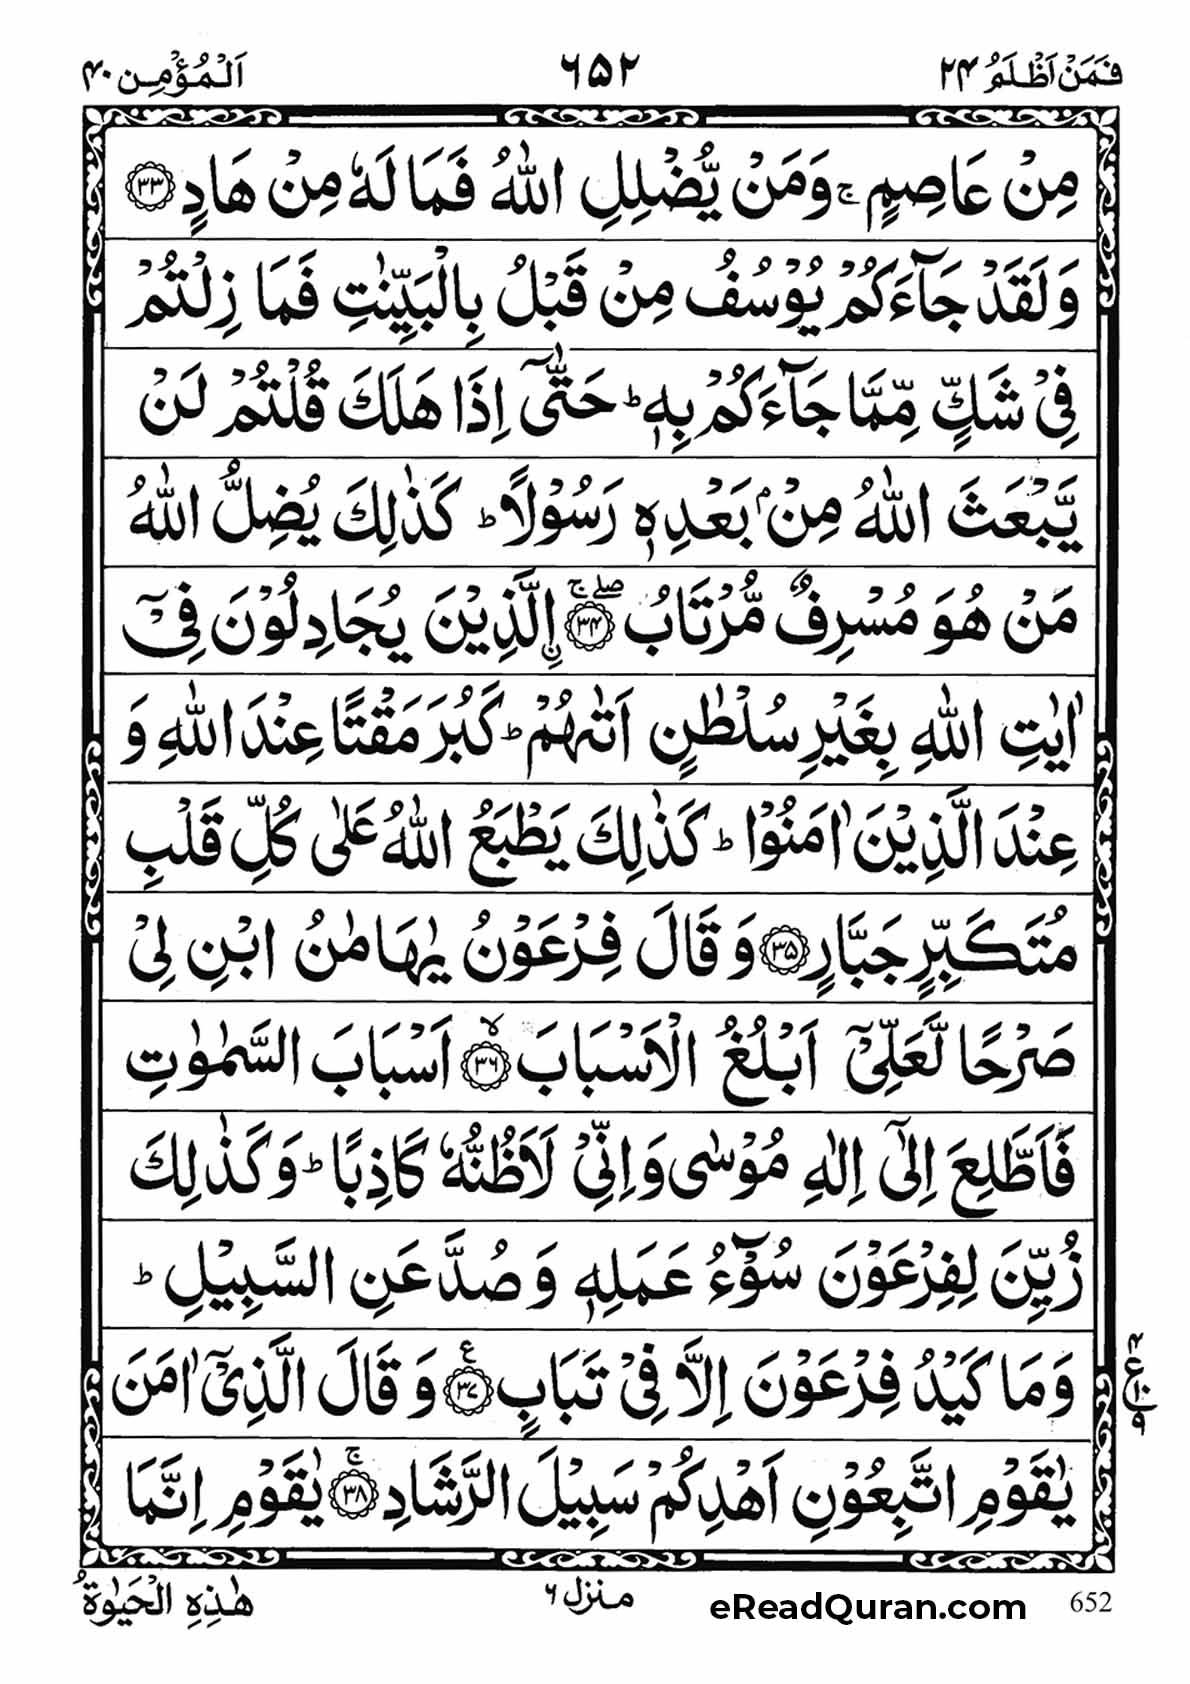 فَمَنْ اَظْلَمُ ۲۴ ۶۵۲ اَلْمُؤْمِن ۴۰
مِنْ عَاصِمٍ ۚ وَمَنْ يُّضْلِلِ اللّٰهُ فَمَا لَهٗ مِنْ هَادٍ ﴿۳۳﴾
وَلَقَدْ جَآءَكُمْ يُوْسُفُ مِنْ قَبْلُ بِالْبَيِّنٰتِ فَمَا زِلْتُمْ
فِيْ شَكٍّ مِّمَّا جَآءَكُمْ بِهٖ ؕ حَتّٰٓى اِذَا هَلَكَ قُلْتُمْ لَنْ
يَّبْعَثَ اللّٰهُ مِنْۢ بَعْدِهٖ رَسُوْلًا ؕ كَذٰلِكَ يُضِلُّ اللّٰهُ
مَنْ هُوَ مُسْرِفٌ مُّرْتَابُ ﴿۳۴﴾ ۖۚ اِ۟لَّذِيْنَ يُجَادِلُوْنَ فِيْٓ
اٰيٰتِ اللّٰهِ بِغَيْرِ سُلْطٰنٍ اَتٰىهُمْ ؕ كَبُرَ مَقْتًا عِنْدَ اللّٰهِ وَ
عِنْدَ الَّذِيْنَ اٰمَنُوْا ؕ كَذٰلِكَ يَطْبَعُ اللّٰهُ عَلٰى كُلِّ قَلْبِ
مُتَكَبِّرٍ جَبَّارٍ ﴿۳۵﴾ وَ قَالَ فِرْعَوْنُ يٰهَامٰنُ ابْنِ لِيْ
صَرْحًا لَّعَلِّيْٓ اَبْلُغُ الْاَسْبَابَ ﴿۳۶﴾ ۙ اَسْبَابَ السَّمٰوٰتِ
فَاَطَّلِعَ اِلٰٓى اِلٰهِ مُوْسٰى وَاِنِّيْ لَاَظُنُّهٗ كَاذِبًا ؕ وَكَذٰلِكَ
زُيِّنَ لِفِرْعَوْنَ سُوْٓءُ عَمَلِهٖ وَصُدَّ عَنِ السَّبِيْلِ ؕ
وَمَا كَيْدُ فِرْعَوْنَ اِلَّا فِيْ تَبَابٍ ﴿۳۷﴾ ع وَ قَالَ الَّذِيْٓ اٰمَنَ
يٰقَوْمِ اتَّبِعُوْنِ اَهْدِكُمْ سَبِيْلَ الرَّشَادِ ﴿۳۸﴾ ۚ يٰقَوْمِ اِنَّمَا
652 eReadQuran.com منزل ۶ هٰذِهِ الْحَيٰوةُ